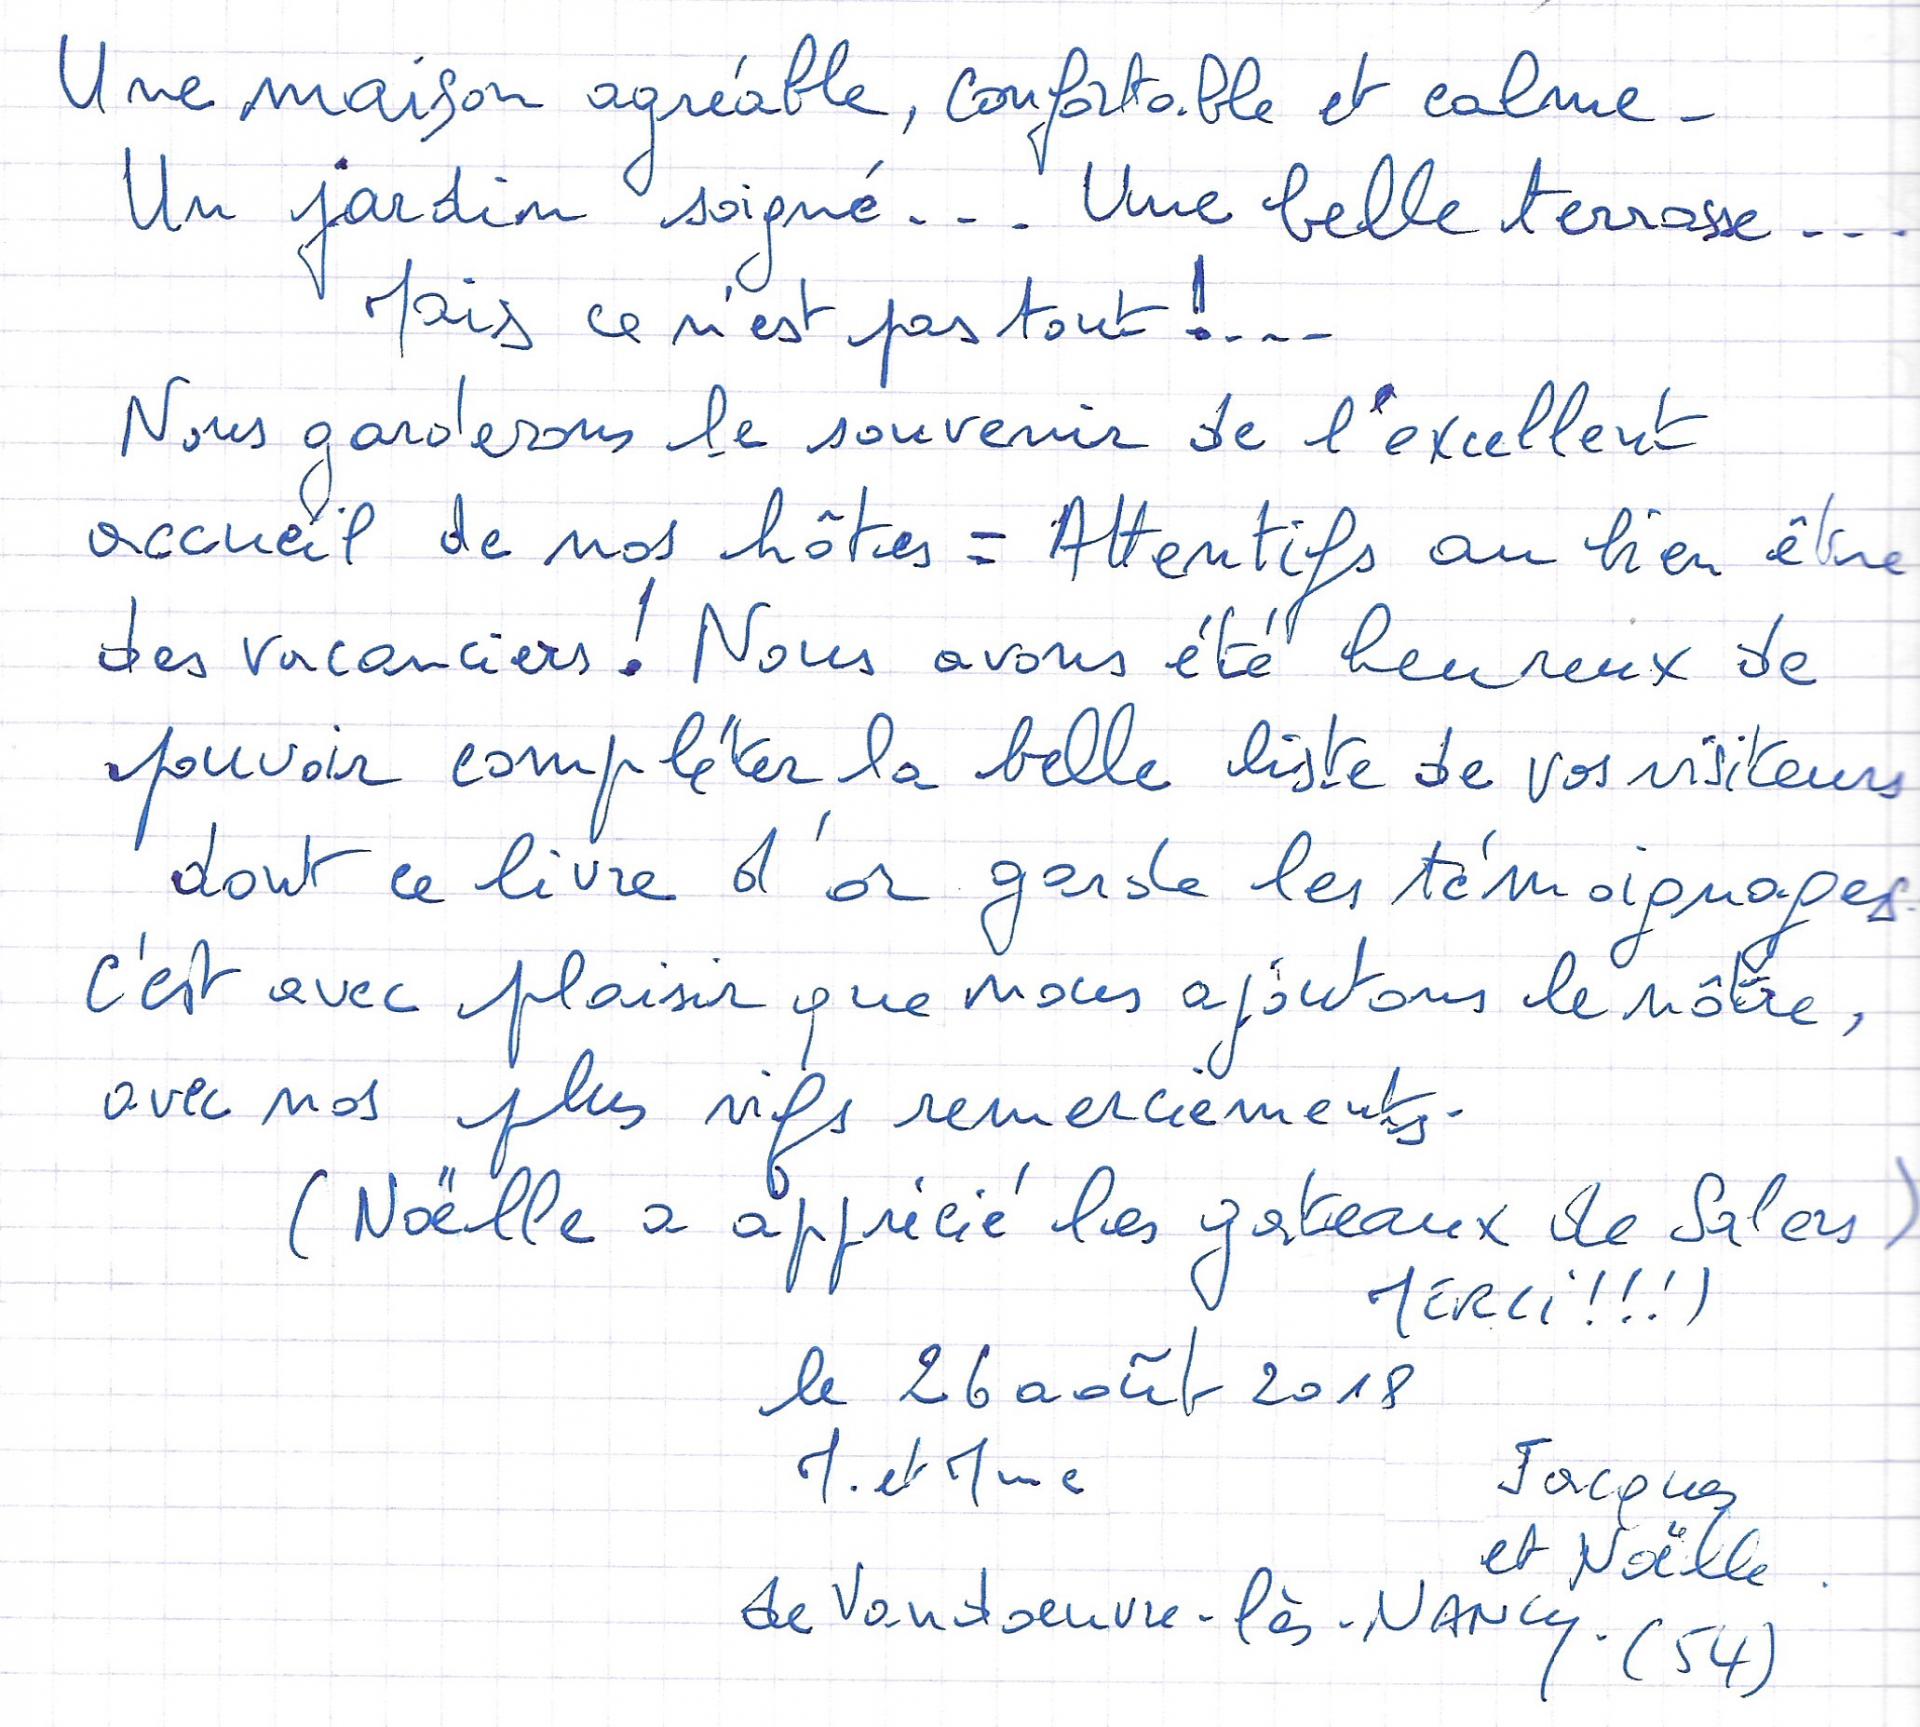 Une maison agréable, confortable et calme -
Un jardin soigné... Une belle terrasse ...
Mais ce n'est pas tout !...
Nous garderons le souvenir de l'excellent
accueil de nos hôtes = Attentifs au bien être
des vacanciers ! Nous avons été heureux de
pouvoir compléter la belle liste de vos visiteurs
dont ce livre d'or garde les témoignages.
c'est avec plaisir que nous ajoutons le nôtre,
avec nos plus vifs remerciements.
(Noëlle a apprécié les gateaux de Salers)
MERCi!!!)
le 26 août 2018
M. et Mme
Jacques
et Noëlle.
de Vandoeuvre-lès-NANCY. (54)